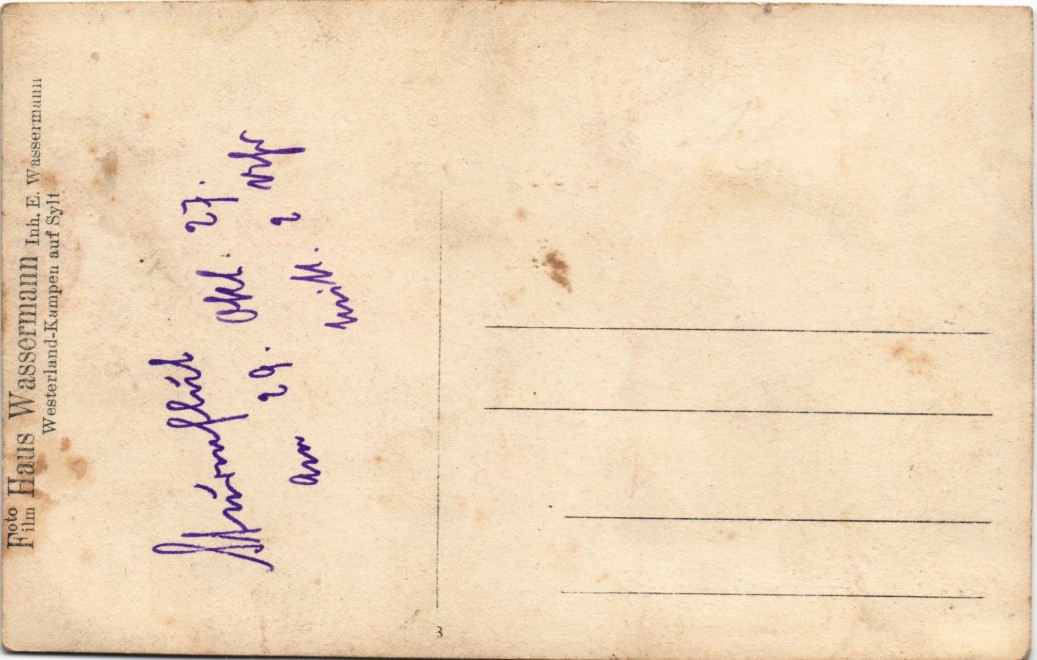 Foto
Film Haus Wassermann Inh. E. Wassermann
Westerland-Kampen auf Sylt
Sturmflut Okt. 27.
am 29. mitt. 2 Uhr
3